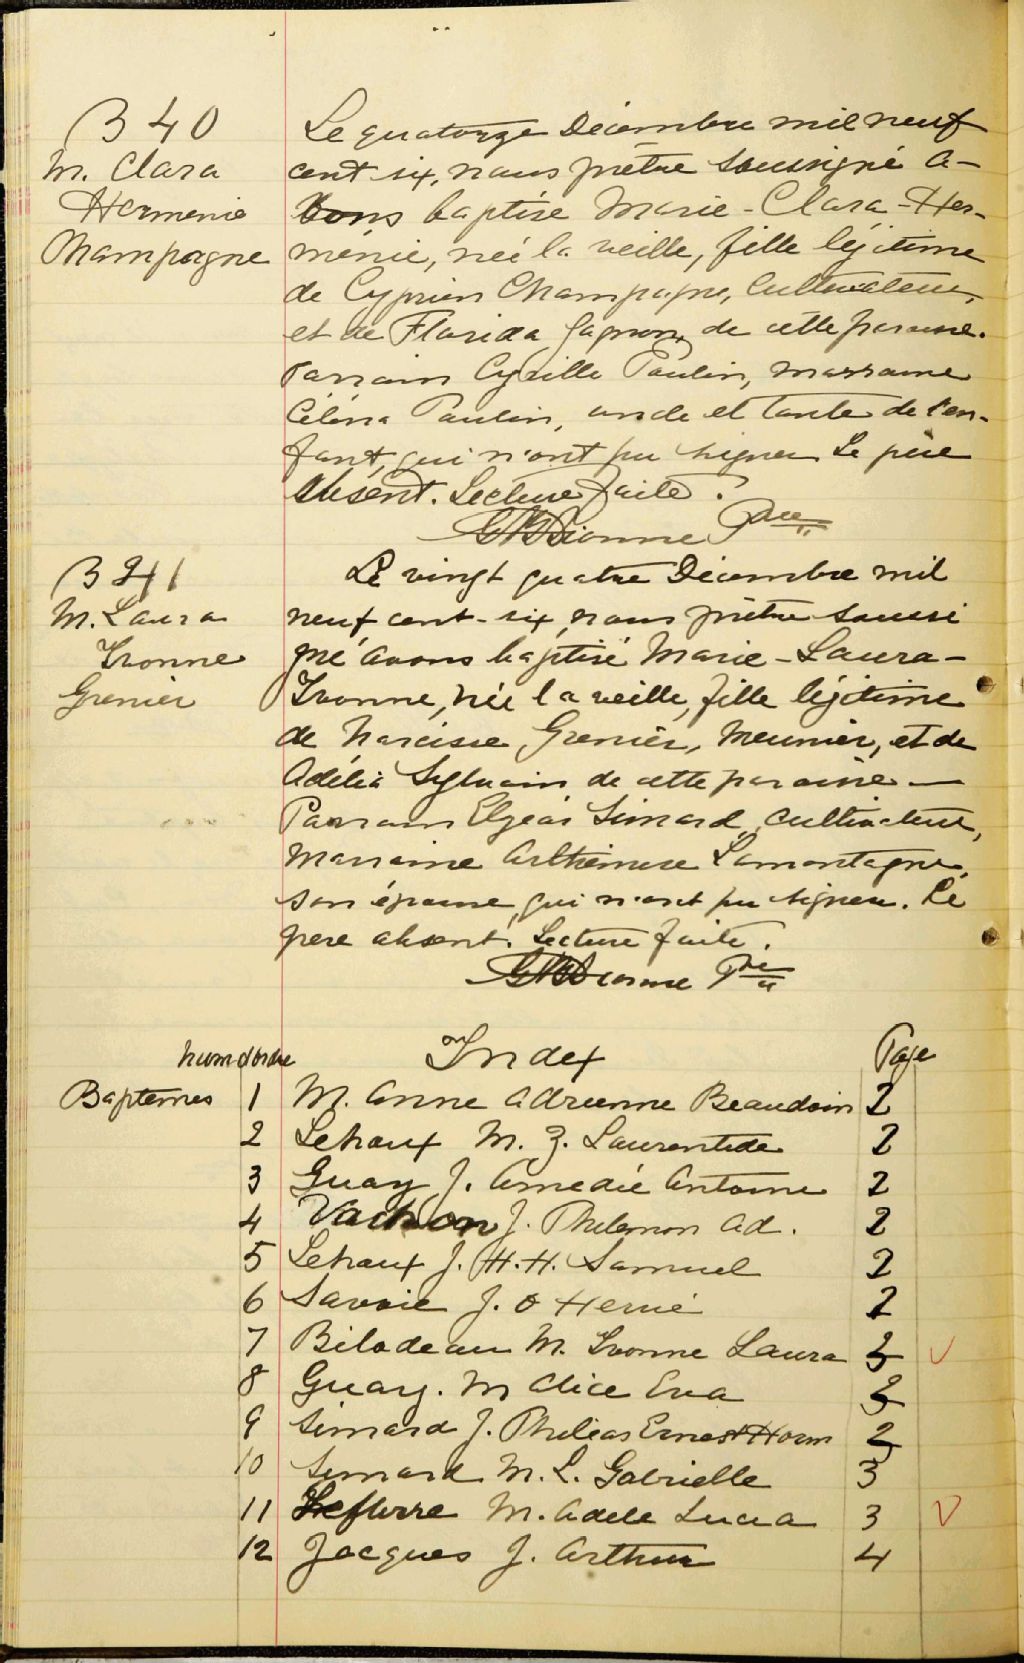 B 40
M. Clara
Hermenie
Champagne
Le quatorze Décembre mil neuf
cent six, nous prêtre soussigné a-
vons baptisé Marie-Clara-Her-
ménie, née la veille, fille légitime
de Cyprien Champagne, Cultivateur,
et de Florida Gagnon, de cette paroisse.
Parrain Cyrille Poulin, marraine
Célina Poulin, oncle et tante de l'en-
fant, qui n'ont pu signer. Le père
absent. Lecture faite.
Dionne Ptre
B 41
M. Laura
Yvonne
Grenier
Le vingt quatre Décembre mil
neuf cent-six, nous prêtre soussi
gné avons baptisé Marie-Laura-
Yvonne, née la veille, fille légitime
de Narcisse Grenier, Meunier, et de
Adélia Sylvain de cette paroisse —
Parrain Elzéar Simard, cultivateur,
Marraine Arthémise Lamontagne,
son épouse, qui n'ont pu signer. Le
père absent. Lecture faite.
Dionne Ptre
Num d'ordre Index Page
Baptemes 1 M. Anne Adrienne Beaudoin 2
2 Lehoux M. Z. Laurentide 2
3 Guay J. Amedié Antoine 2
4 Vachon J. Philemon Ad. 2
5 Lehoux J. H. H. Samuel 2
6 Savoie J. O Hervé 2
7 Bilodeau M. Yvonne Laura 3
8 Guay. M Alice Eva 3
9 Simard J. Philias Ernest Horm
10 Simard M. L. Gabrielle 3
11 M. Adele Lucia 3
12 Jacques J. Arthur 4